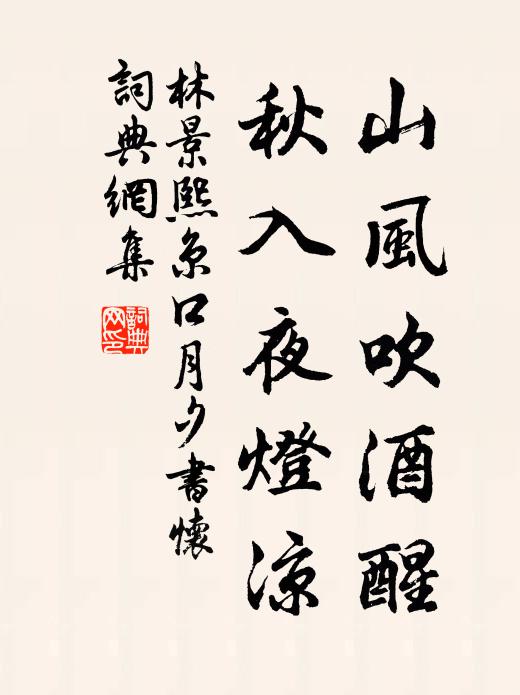 山風吹酒醒
秋入夜燈涼
林景熙京口月夕書懷
詞典網集
詞典
网印